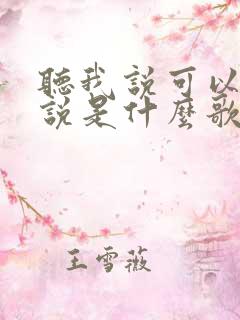 聽我說可以
說是什麼歌
王雪薇